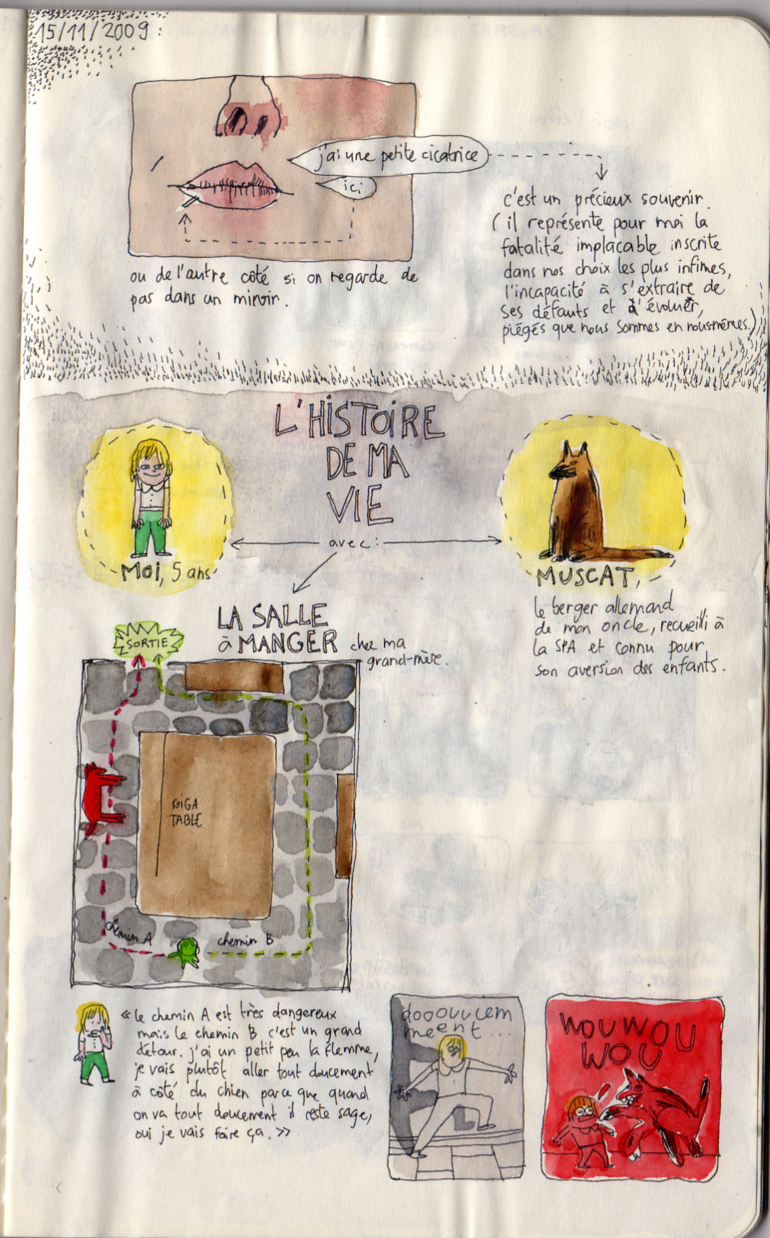 15/11/2009 :
j'ai une petite cicatrice
ici
ou de l'autre côté si on regarde de
pas dans un miroir.
c'est un précieux souvenir.
( il représente pour moi la
fatalité implacable inscrite
dans nos choix les plus infimes,
l'incapacité à s'extraire de
ses défauts et à évoluer,
piégés que nous sommes en nousmêmes.)
L'HISTOIRE
DE MA
VIE
avec :
MOI, 5 ans
MUSCAT,
le berger allemand
de mon oncle, recueilli à
la SPA et connu pour
son aversion des enfants.
LA SALLE
à MANGER chez ma
grand-mère.
SORTIE
GIGA
TABLE
chemin A
chemin B
« le chemin A est très dangereux
mais le chemin B c'est un grand
détour. j'ai un petit peu la flemme,
je vais plutôt aller tout doucement
à côté du chien parce que quand
on va tout doucement il reste sage,
oui je vais faire ça. »
dooouucem
meent...
WOUWOU
WOU